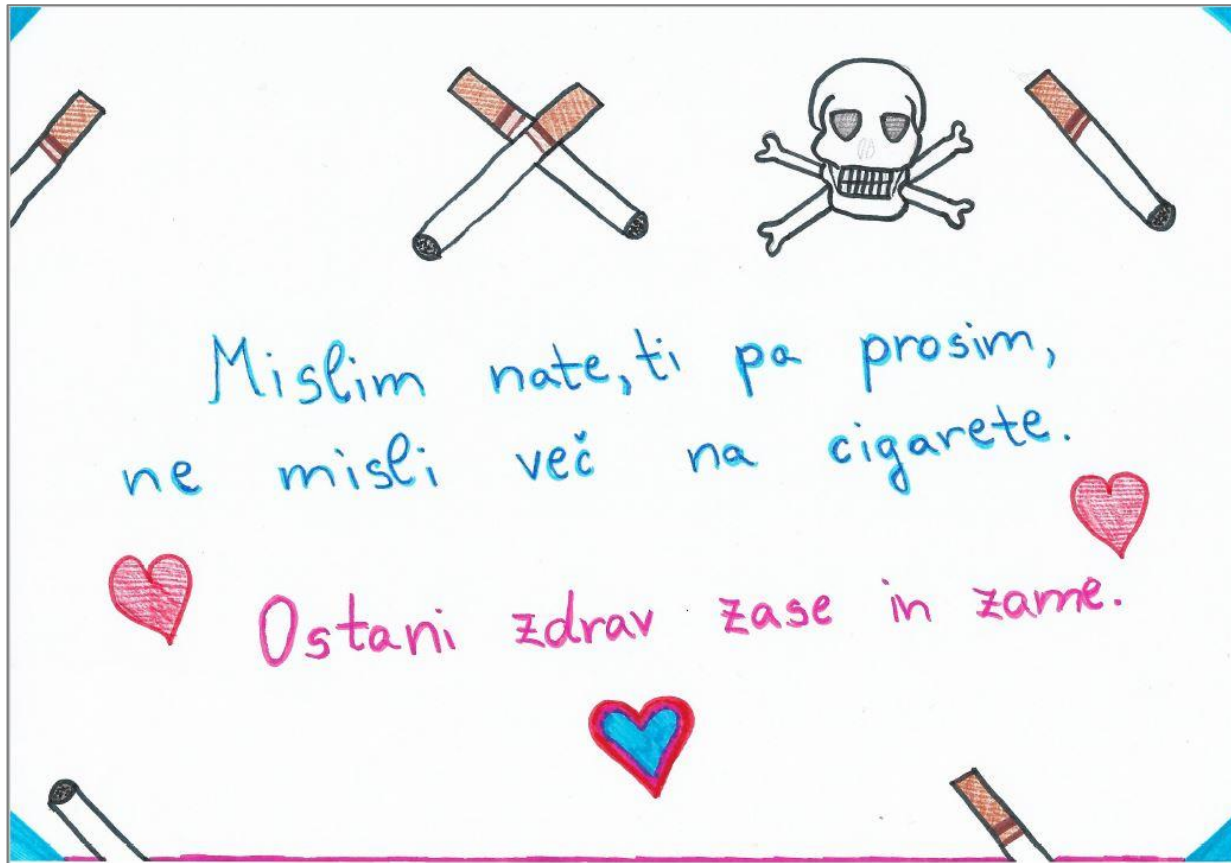 Mislim nate, ti pa prosim,
ne misli več na cigarete.
Ostani zdrav zase in zame.